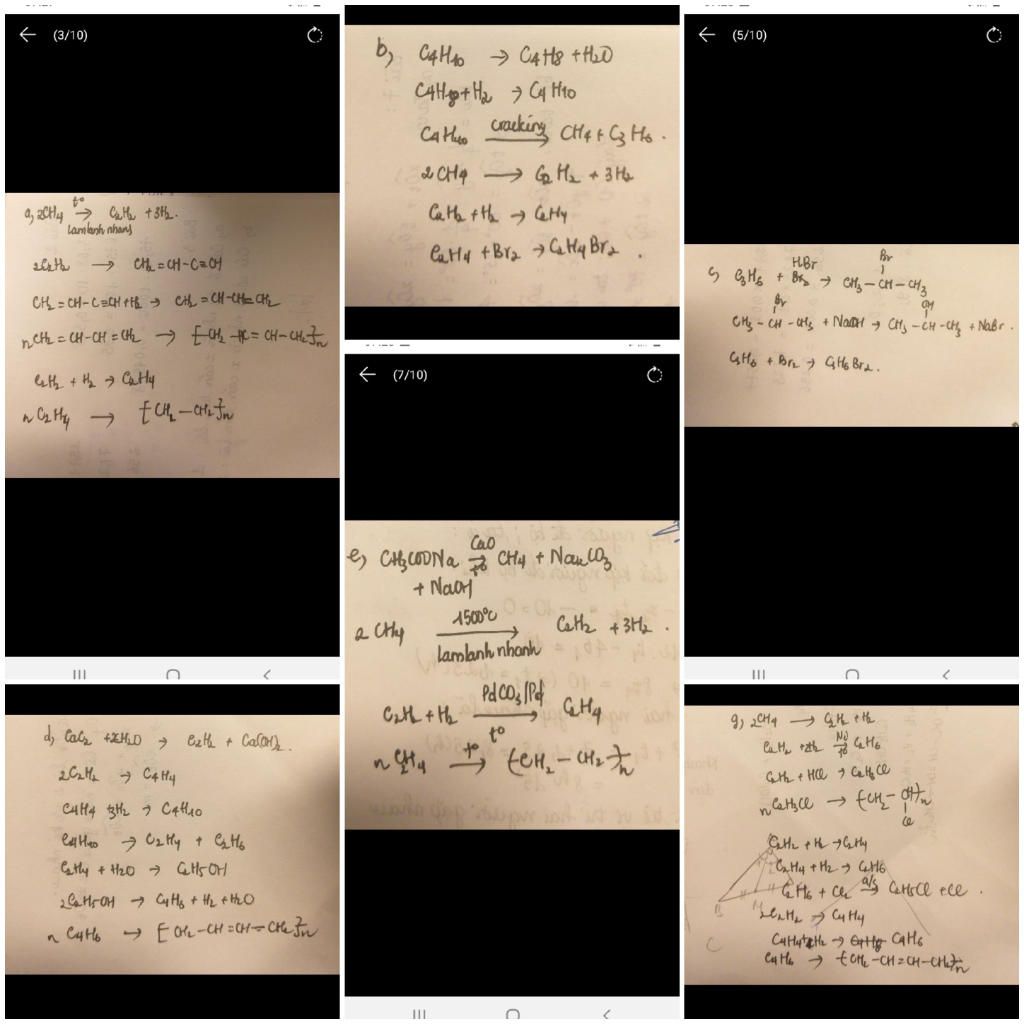 (3/10)
a, 2CH4 t° → C2H2 + 3H2.
lamlanh nhanh
2C2H2 → CH2=CH-C≡CH
CH2=CH-C≡CH+H2 → CH2=CH-CH=CH2
nCH2=CH-CH=CH2 → [-CH2-HC=CH-CH2-]n
C2H2 + H2 → C2H4
n C2H4 → [-CH2-CH2-]n
b, C4H10 → C4H8 + H2O
C4H8+H2 → C4H10
C4H10 cracking → CH4 + C3H6.
2CH4 → C2H2 + 3H2
C2H2 + H2 → C2H4
C2H4 + Br2 → C2H4Br2.
(5/10)
HBr
Br
C3H6 + → CH3-CH-CH3
Br
OH
CH3-CH-CH3 + NaOH → CH3-CH-CH3 + NaBr.
C3H6 + Br2 → C3H6Br2.
(7/10)
e, CH3COONa CaO t° → CH4 + Na2CO3
+ NaOH
2CH4 1500°C → C2H2 + 3H2.
lamlanh nhanh
C2H2 + H2 PdCO3/Pd t° → C2H4
n C2H4 t° → [-CH2-CH2-]n
d, CaC2 + 2H2O → C2H2 + Ca(OH)2.
2C2H2 → C4H4
C4H4 3H2 → C4H10
C4H10 → C2H4 + C2H6
C2H4 + H2O → C2H5OH
2C2H5OH → C4H6 + H2 + H2O
n C4H6 → [-CH2-CH=CH-CH2-]n
g, 2CH4 → C2H2 + H2
C2H2 + 2H2 Ni t° → C2H6
C2H2 + HCl → C2H3Cl
nC2H3Cl → [-CH2-CH-]n
Cl
C2H2 + H2 → C2H4
C2H4 + H2 → C2H6
C2H6 + Cl2 a/s → C2H5Cl + Cl.
2C2H2 → C4H4
C4H4 + H2 → C4H8 C4H6
C4H6 → [-CH2-CH=CH-CH2-]n
B
M
C